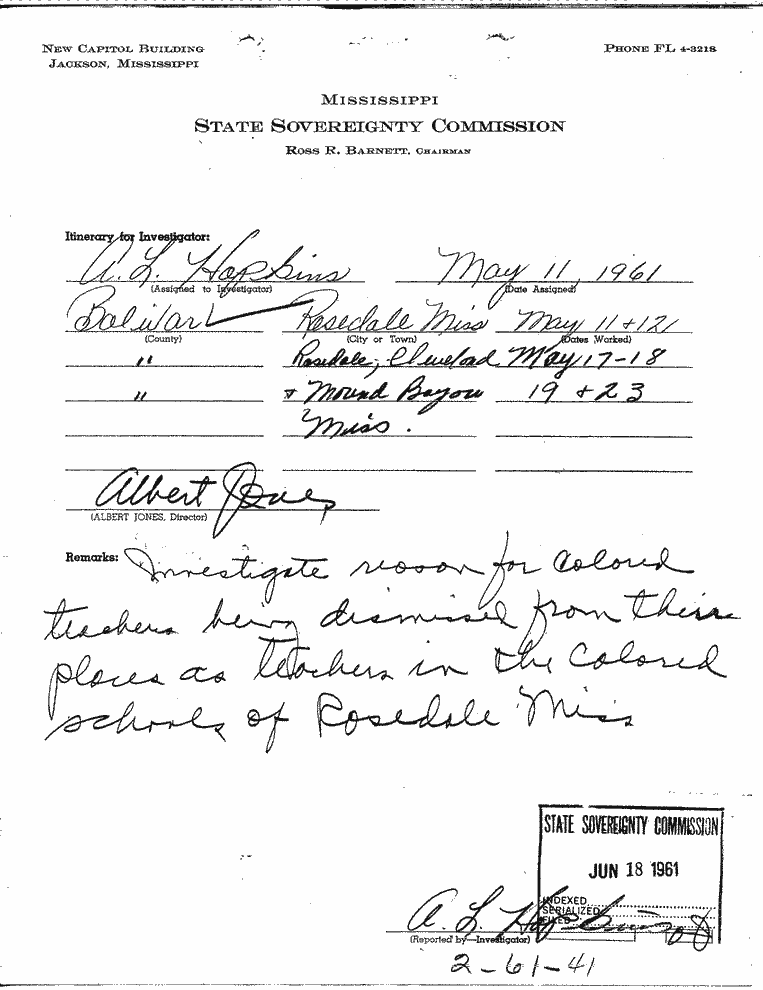 NEW CAPITOL BUILDING
JACKSON, MISSISSIPPI
PHONE FL 4-3218
MISSISSIPPI
STATE SOVEREIGNTY COMMISSION
ROSS R. BARNETT, CHAIRMAN
Itinerary for Investigator:
A. L. Hopkins May 11, 1961
(Assigned to Investigator) (Date Assigned)
Bolivar Rosedale Miss May 11 + 12
(County) (City or Town) (Dates Worked)
" Rosedale, Cleveland May 17-18
" + Mound Bayou 19 + 23
Miss.
Albert Jones
(ALBERT JONES, Director)
Remarks: Investigate reason for Colored
teachers being dismissed from their
places as teachers in the Colored
schools of Rosedale Miss
STATE SOVEREIGNTY COMMISSION
JUN 18 1961
INDEXED
SERIALIZED
FILED
A. L. Hopkins
(Reported by—Investigator)
2-61-41